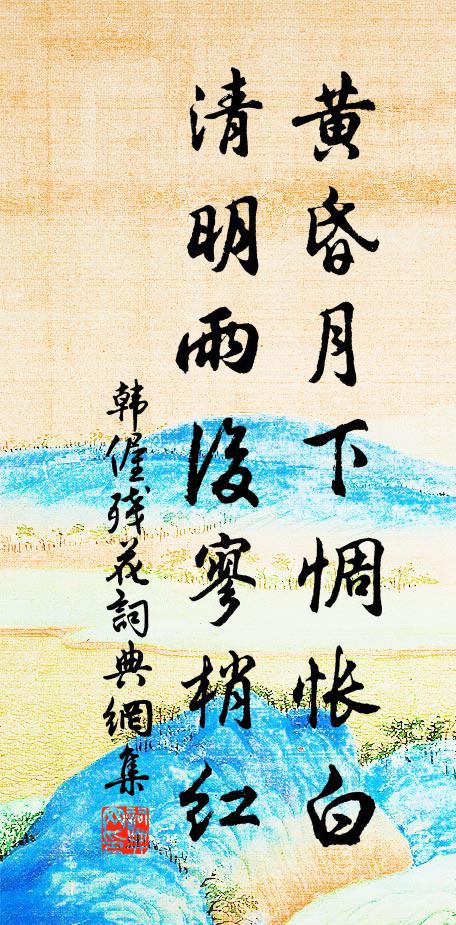 黄昏月下惆怅白
清明雨後寥梢红
韩偓残花詞典網集